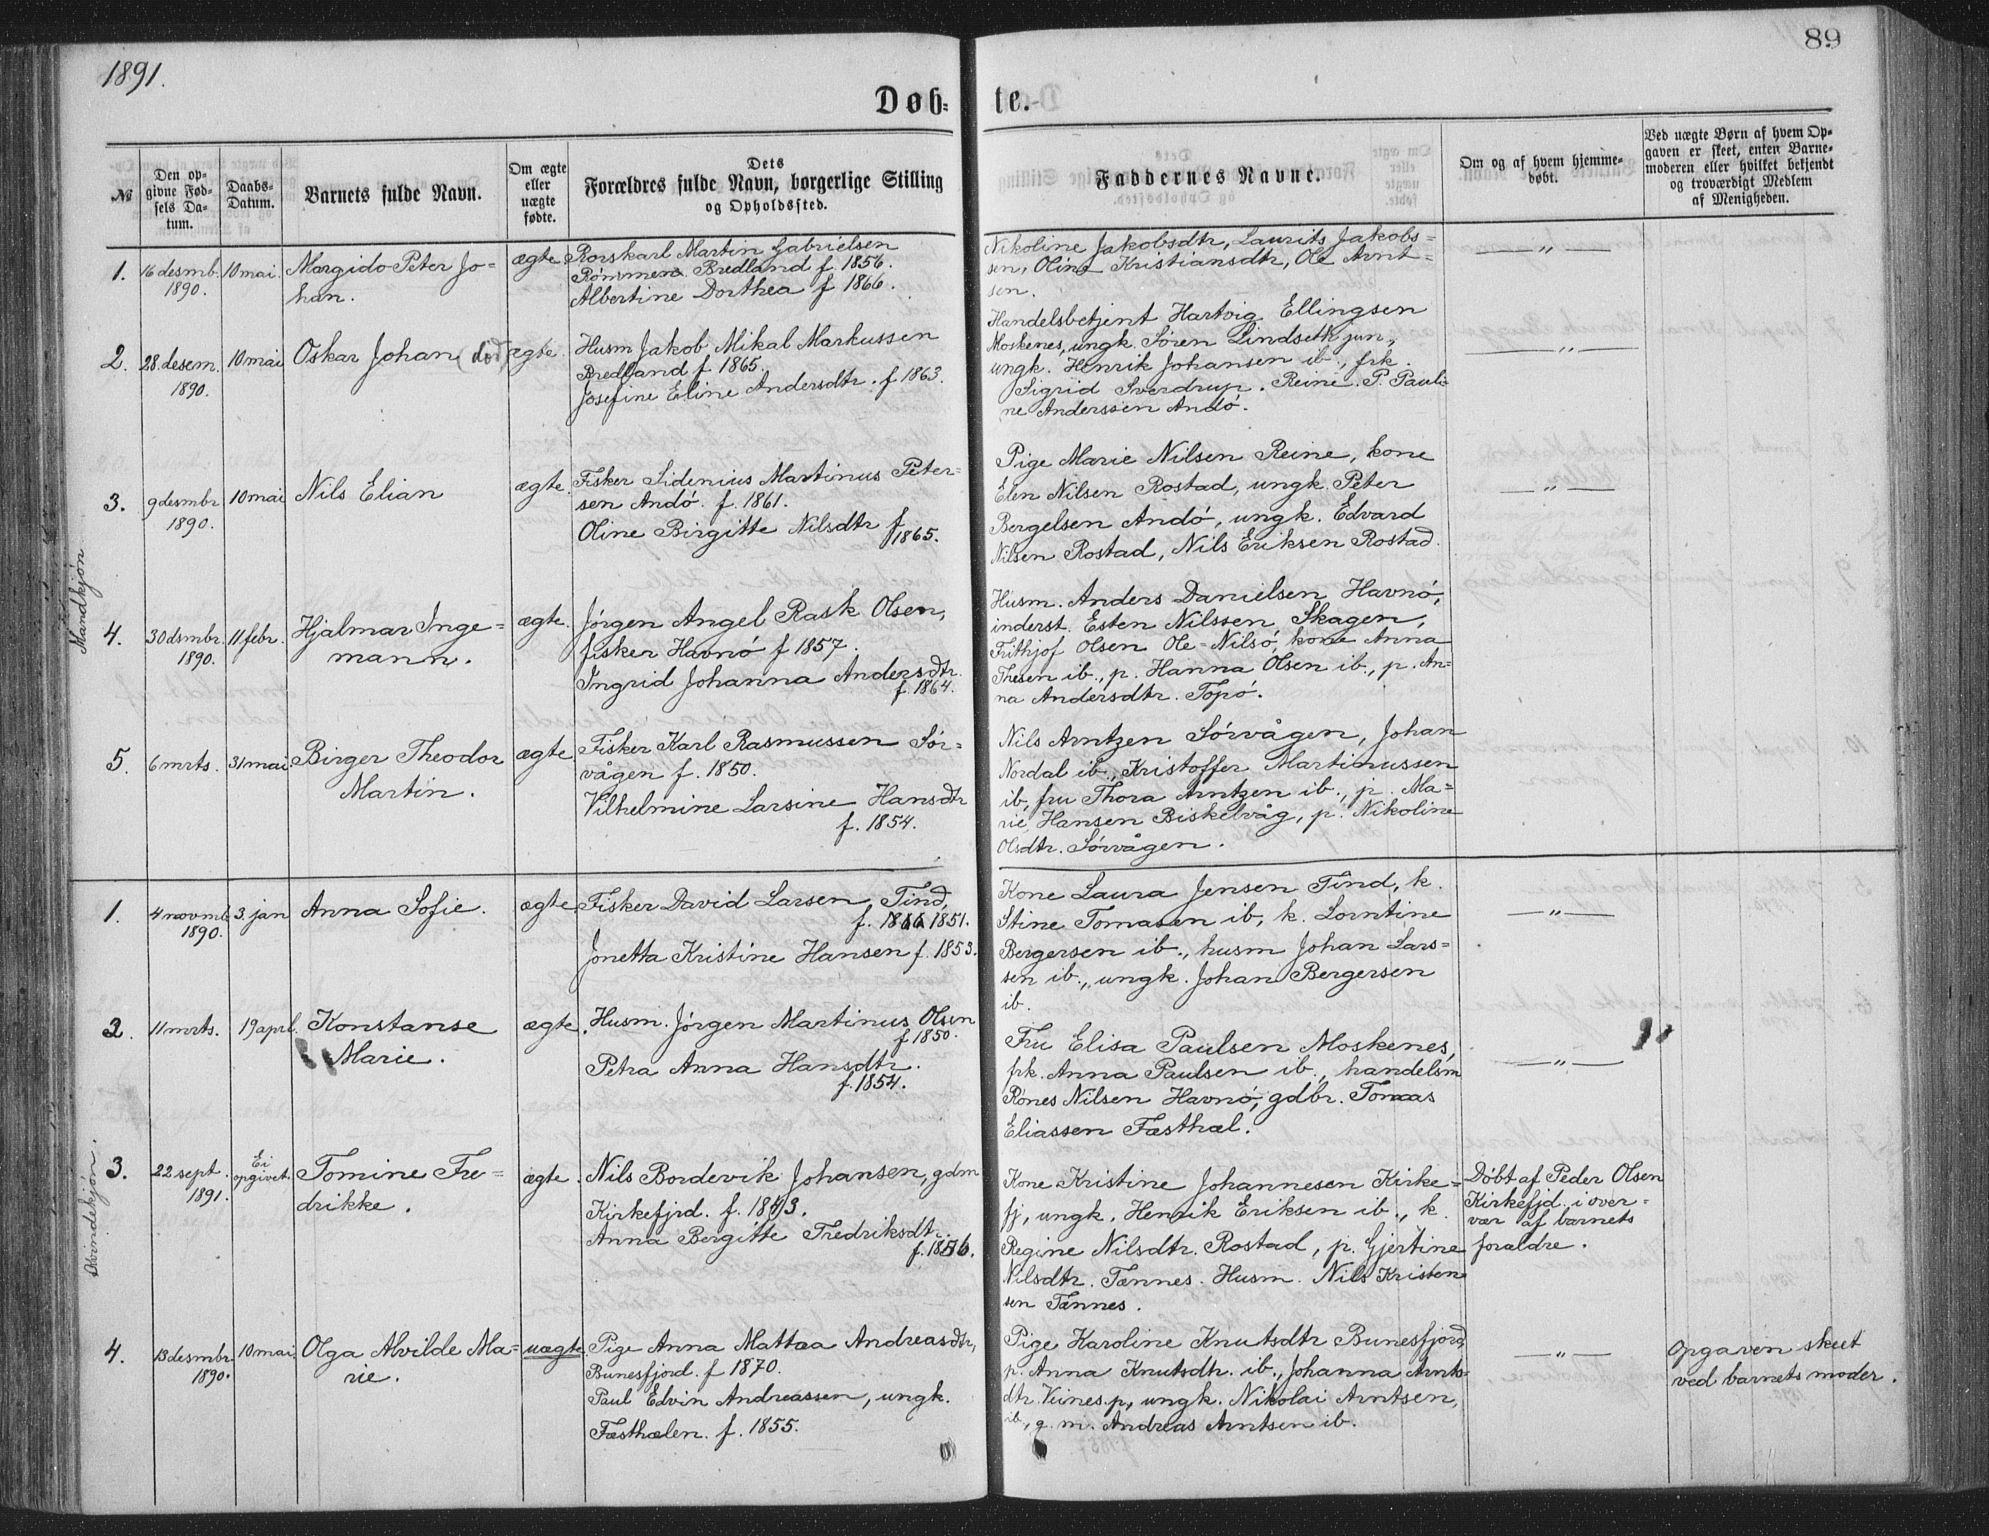 1891.
89
Døb-
te.
№
Den op-
givne Fød-
sels Da-
tum.
Daabs-
Datum.
Barnets fulde Navn.
Om ægte
eller
uægte
fødte.
Dets
Forældres fulde Navn, borgerlige Stilling
og Opholdssted.
Faddernes Navne.
Om og af hvem hjemme-
døbt.
Ved uægte Børn af hvem Op-
gaven er skeet, enten Barne-
moderen eller hvilket bekjendt
og troværdigt Medlem
af Menigheden.
Mandkjøn.
1. 16 desmb. 10 mai. Margido Peter Jo- ægte Rorskarl Martin Gabrielsen
1890. han. Bredland f. 1856.
Albertine Dorthea f 1866.
Nikoline Jakobsdtr, Laurits Jakobs-
sen, Oline Kristiansdtr, Ole Arnt-
sen.
— " —
2. 28. desem. 10 mai Oskar Johan (død) ægte. Husm Jakob Mikal Markussen
1890. Bredland f 1865
Josefine Eline Andersdtr. f 1863.
Handelsbetjent Hartvig Ellingsen
Moskenes, ungk. Sören Lindseth jun,
ungk. Henrik Johansen ib., frk.
Sigrid Sverdrup. Reine. P. Pauli-
ne Anderssen Andö.
— " —
3. 9 desmbr 10 mai Nils Elian ægte. Fisker Sidenius Martinus Peter-
1890. sen Andö. f. 1861.
Oline Birgitte Nilsdtr f
1865.
Pige Marie Nilsen Reine, kone
Elen Nilsen Rostad, ungk. Peter
Bergelsen Andö, ungk. Edvard
Nilsen Rostad, Nils Eriksen Rostad.
— " —
4. 30 dsmbr. 11 febr. Hjalmar Inge- ægte. Jörgen Angel Rask Olsen,
1890. mann. fisker Havnö f 1857.
Ingrid Johanna Andersdtr.
f. 1864.
Husm. Anders Danielsen Havnö,
inderst. Esten Nilssen Skagen,
Frithjof Olsen Ole-Nilsö, kone Anna
Thesen ib., p. Hanna Olsen ib., p. An-
na Andersdtr. Topö.
5. 6 mrts. 31 mai. Birger Theodor ægte Fisker Karl Rasmussen Sör-
Martin. vågen f. 1850.
Vilhelmine Larsine Hansdtr
f. 1854.
Nils Arntzen Sörvågen, Johan
Nordal ib., Kristoffer Martinussen
ib, fru Thora Arntzen ib., p. Ma-
rie Hansen Biskelvåg, p. Nikoline
Olsdtr. Sörvågen.
Qvindekjøn.
1. 4 novmb. 3. jan Anna Sofie. ægte. Fisker David Larsen, Tind,
1890. f. 1851.
Jonetta Kristine Hansen f. 1853.
Kone Laura Jensen Tind, k.
Stine Tomasen ib, k. Lorntine
Bergersen ib., husm Johan Lars-
sen ib., ungk. Johan Bergersen
ib.
— " —
2. 11 mrts. 19 april. Konstanse ægte. Husm. Jörgen Martinus Olsen
Marie. f. 1850.
Petra Anna Hansdtr.
f. 1854.
Fru Elisa Paulsen Moskenes,
frk. Anna Paulsen ib., handelsm
Rönes Nilsen Havnö, gdbr. Tomas
Eliassen Fæsthæl.
— " —
3. 22 sept. Ei Tomine Fre- ægte. Nils Bordevik Johansen, gdm
1891. opgivet. drikke. Kirkefjrd. f.
Anna Bergitte Fredriksdtr.
Kone Kristine Johannesen Kirke-
fj, ungk. Henrik Eriksen ib., k.
Regine Nilsdtr. Rostad, p. Gjertine
Nilsdtr. Tennes. Husm. Nils Kristen-
sen Tennes.
Döbt af Peder Olsen
Kirkefjd. i over-
vær af barnets
foraldre.
4. 13 desmbr. 10 mai. Olga Alvilde Ma- uægte. Pige Anna Mattea Andreasdtr,
1890. rie. Bunesfjord. f 1870.
Paul Edvin Andreassen, ungk.
Fæsthælen. f. 1855.
Pige Karoline Knutsdtr Bunesfjord,
p. Anna Knutsdtr. ib., Johanna Arnts-
dtr. Vines. p, ungk. Nikolai Arntsen,
ib., g. m. Andreas Arntsen ib.
— " —
Opgaven skeet
ved barnets moder.